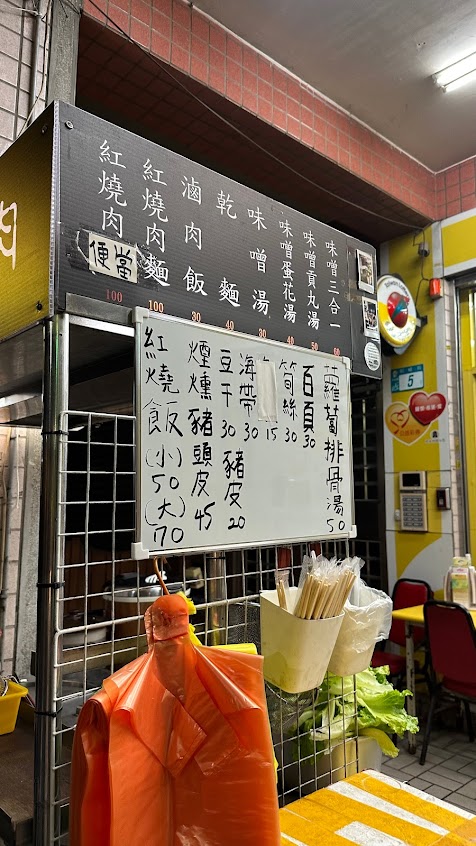 肉
紅燒肉便當 100
紅燒肉麵 100
滷肉飯 30
乾麵 40
味噌湯 30
味噌蛋花湯 40
味噌貢丸湯 50
味噌三合一 60
紅燒飯(小)50(大)70
煙燻豬頭皮45
豆干30
豬皮20
海帶30
15
筍絲30
百頁30
蘿蔔排骨湯50
5